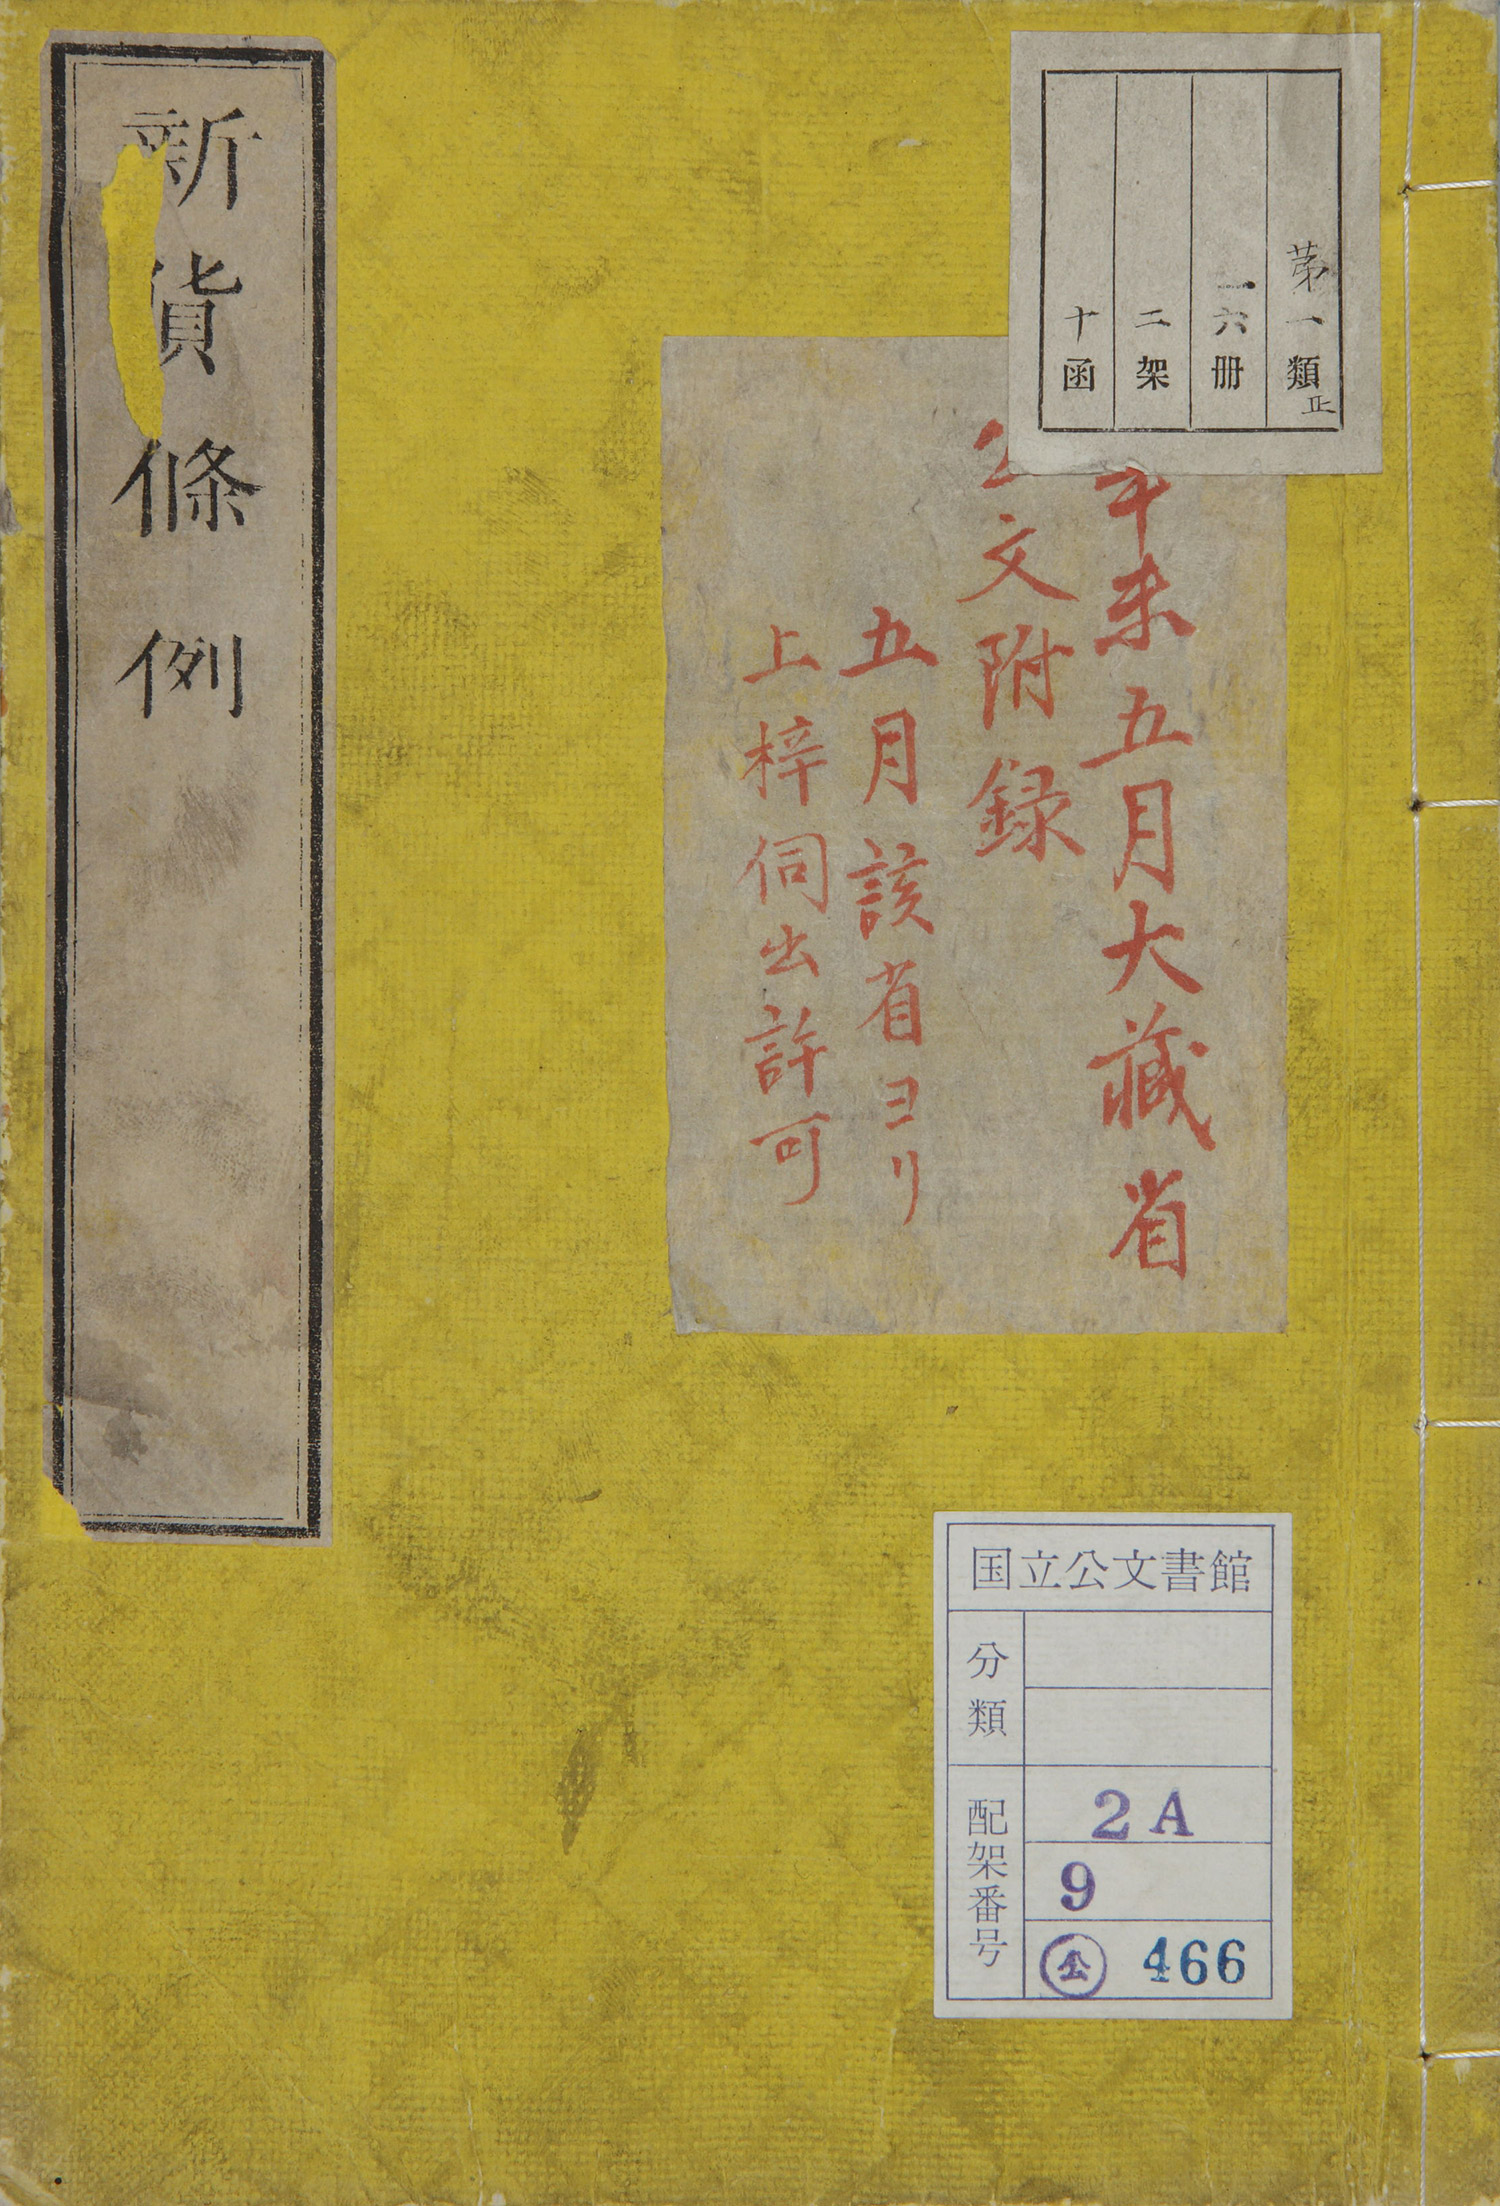 第一類
正
一六冊
二架
十函
辛未五月大藏省
公文附録
五月該省ヨリ
上梓伺出許可
新貨條例
国立公文書館
分類
配架番号
2A
9
公 466